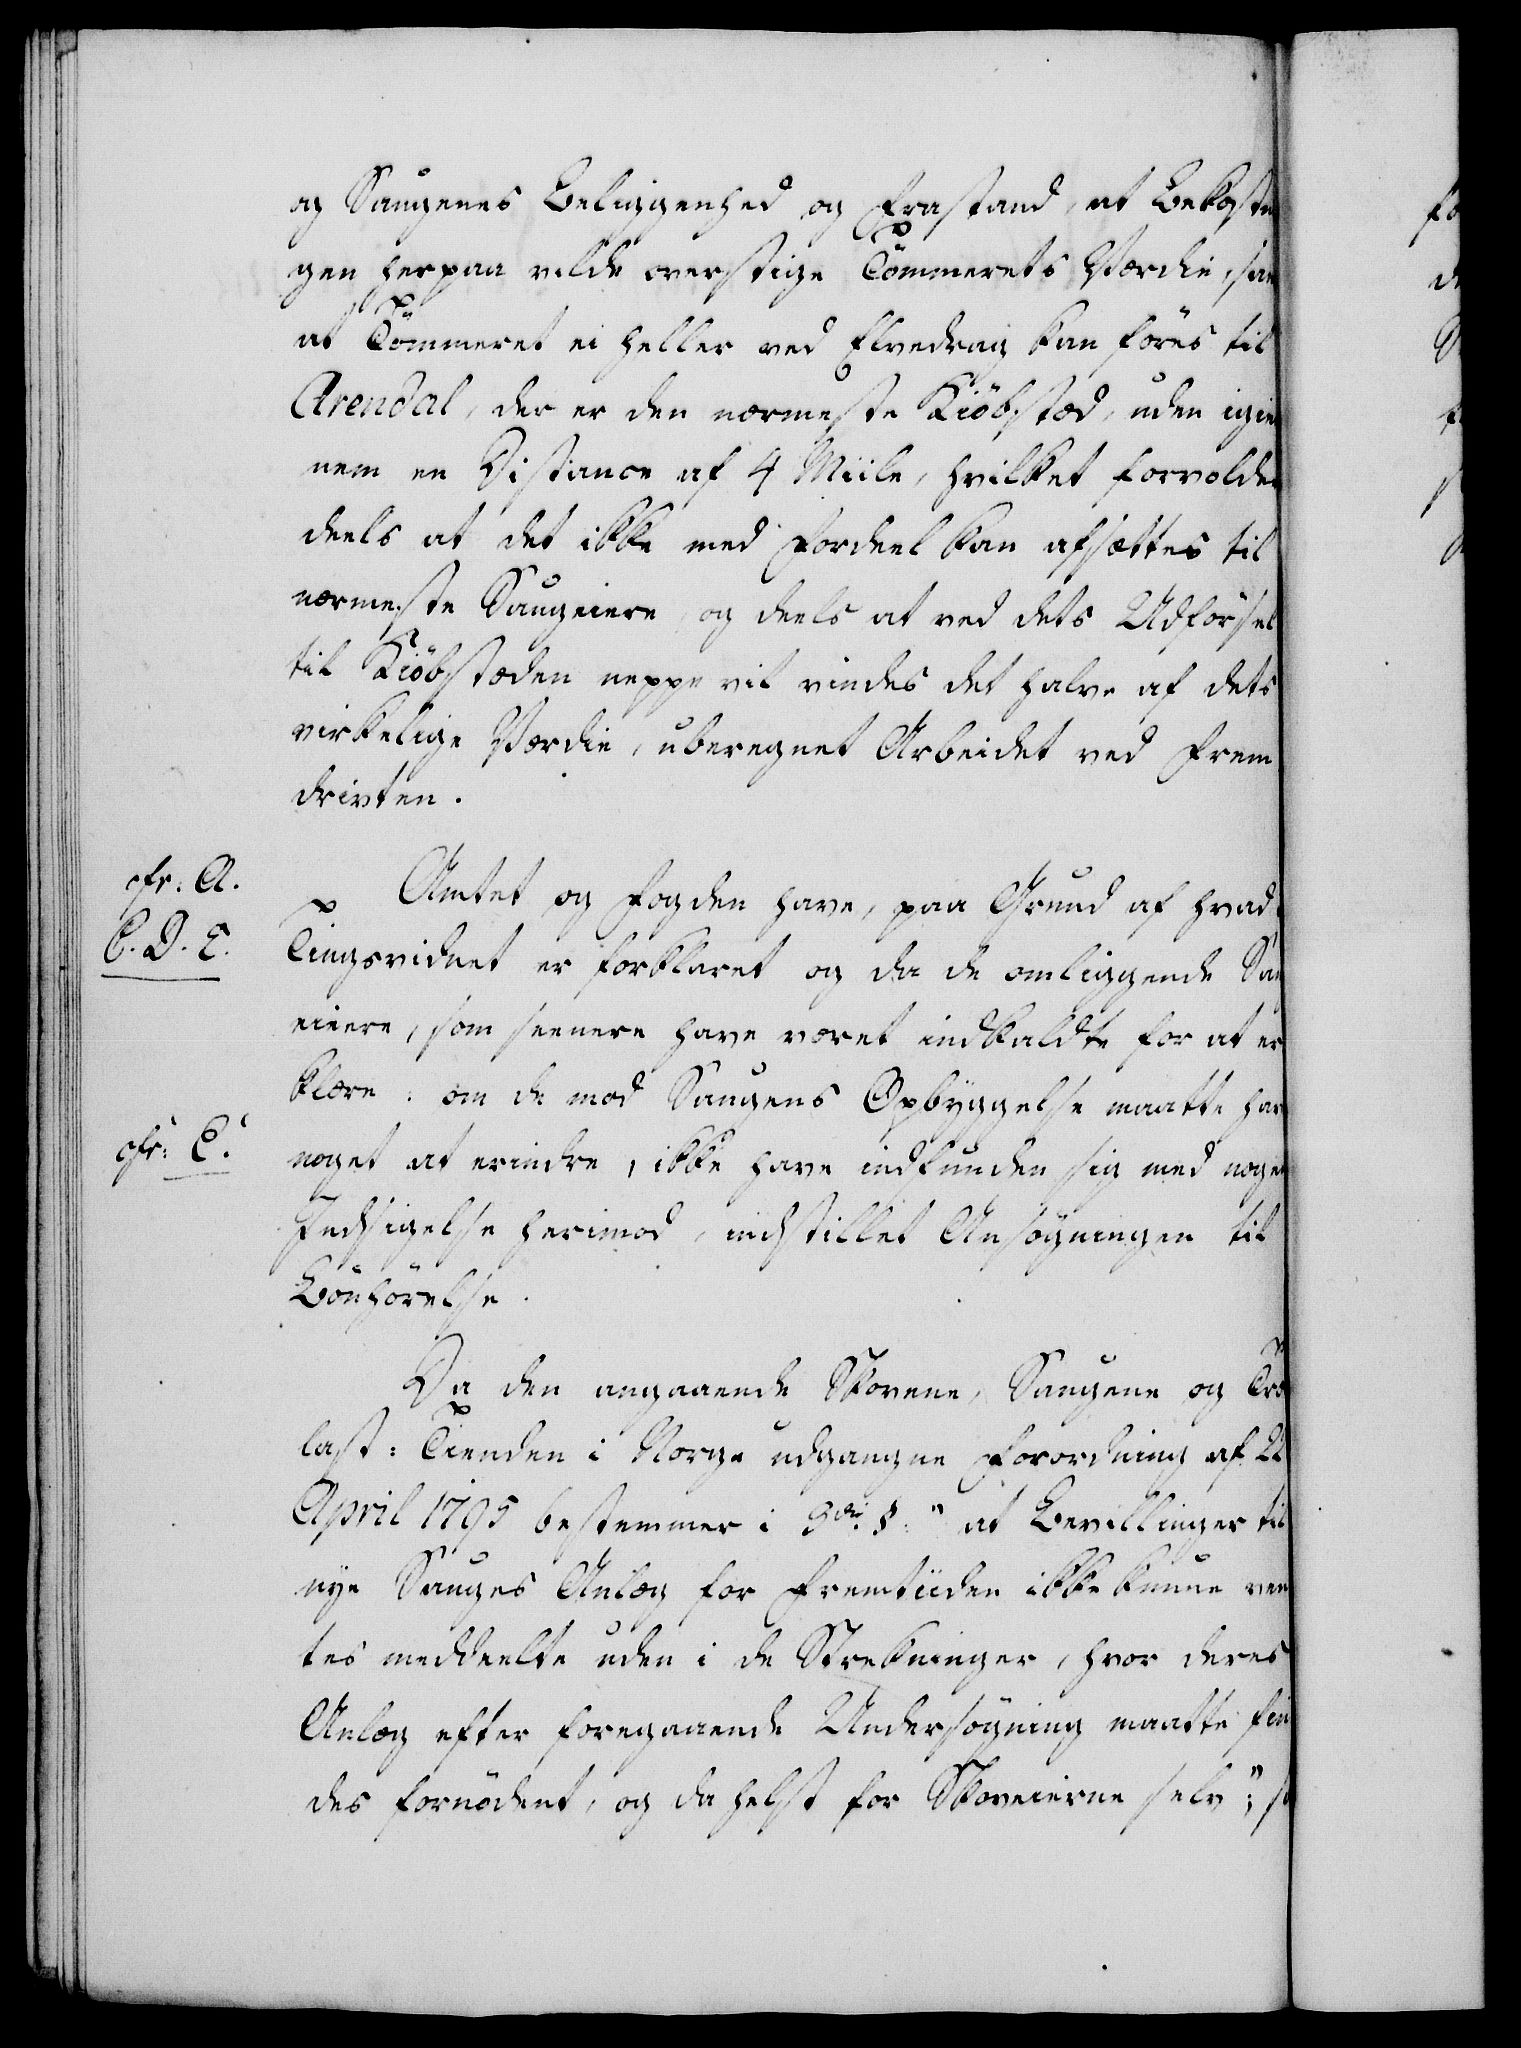 og Saugenes Beliggenhed og Frastand, at Bekostn
gen herpaa vilde overstige Tömmerets Værdie, saa
at Tömmeret ei heller ved Elvedrag kan föres til
Arendal, der er den nærmeste Kiöbstæd, uden igien
nem en Distance af 4 Miile, hvilket forvolder
deels at det ikke med Fordeel kan afsættes til
nærmeste Saugeiere, og deels at ved dets Udförsel
til Kiöbstæden neppe vil vindes det halve af dets
virkelige Værdie, uberegnet Arbeidet ved Frem
drivten.
cfr: A.
C. D. E.
Amtet og Fogden have, paa Grund af hvad
Tingsvidnet er forklaret og da de omliggende Sau
eiere, som seenere have været indkaldte for at er
klære: om de mod Saugens Opbyggelse maatte hav
cfr: E.
noget at erindre, ikke have indfunden sig med nogen
Indsigelse herimod, indstillet Ansögningen til
Bönhörelse.
Da den angaaende Skovene, Saugene og Træ
last: Tienden i Norge udgangne Forordning af 22
April 1795 bestemmer i 9de §: "at Bevillinger til
nye Sauges Anlæg for Fremtiiden ikke kunne ven
tes meddeelte uden i de Strekninger, hvor deres
Anlæg efter foregaaende Undersögning maatte fin
des fornödent, og da helst for Skoveierne selv";